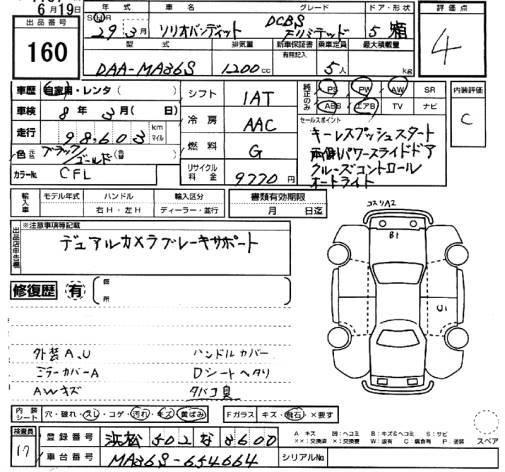 6月19日
出品番号
160
年式 車名 グレード ドア・形状 評価点
29年3月 ソリオバンディット DCBS 5 箱 4
型式 排気量 新車保証書 乗車定員 最大積載量
有無記入
DAA-MA36S 1200cc 5人 kg
車歴 自家用・レンタ( )
車検 8年3月(日)
走行 98,603 km マイル
色 ブラック/ゴールド
カラーNo. CFL
シフト 1AT
冷房 AAC
燃料 G
リサイクル料金 9770円
純正のみ PS PW AW SR
ABS エアB TV ナビ
内装評価
C
セールスポイント
キーレスプッシュスタート
両側パワースライドドア
クルーズコントロール
オートライト
輸入車 モデル年式 ハンドル 輸入区分 書類有効期限
右H・左H ディーラー・並行 月 日迄
※注意事項等記載
デュアルカメラブレーキサポート
修復歴 有 箇所
コスリA2
B1
U1
外装A、U
ミラーカバーA
AWキズ
ハンドルカバー
Dシートヘタリ
タバコ臭
内装シート 穴・破れ・スレ・コゲ・汚れ・キズ・黄ばみ Fガラス キズ・飛石・×要す
検査員 17
登録番号 浜松 502 な 8600
車台番号 MA36S-654664 シリアルNo.
A:キズ U:ヘコミ B:キズ&ヘコミ S:サビ
スペア